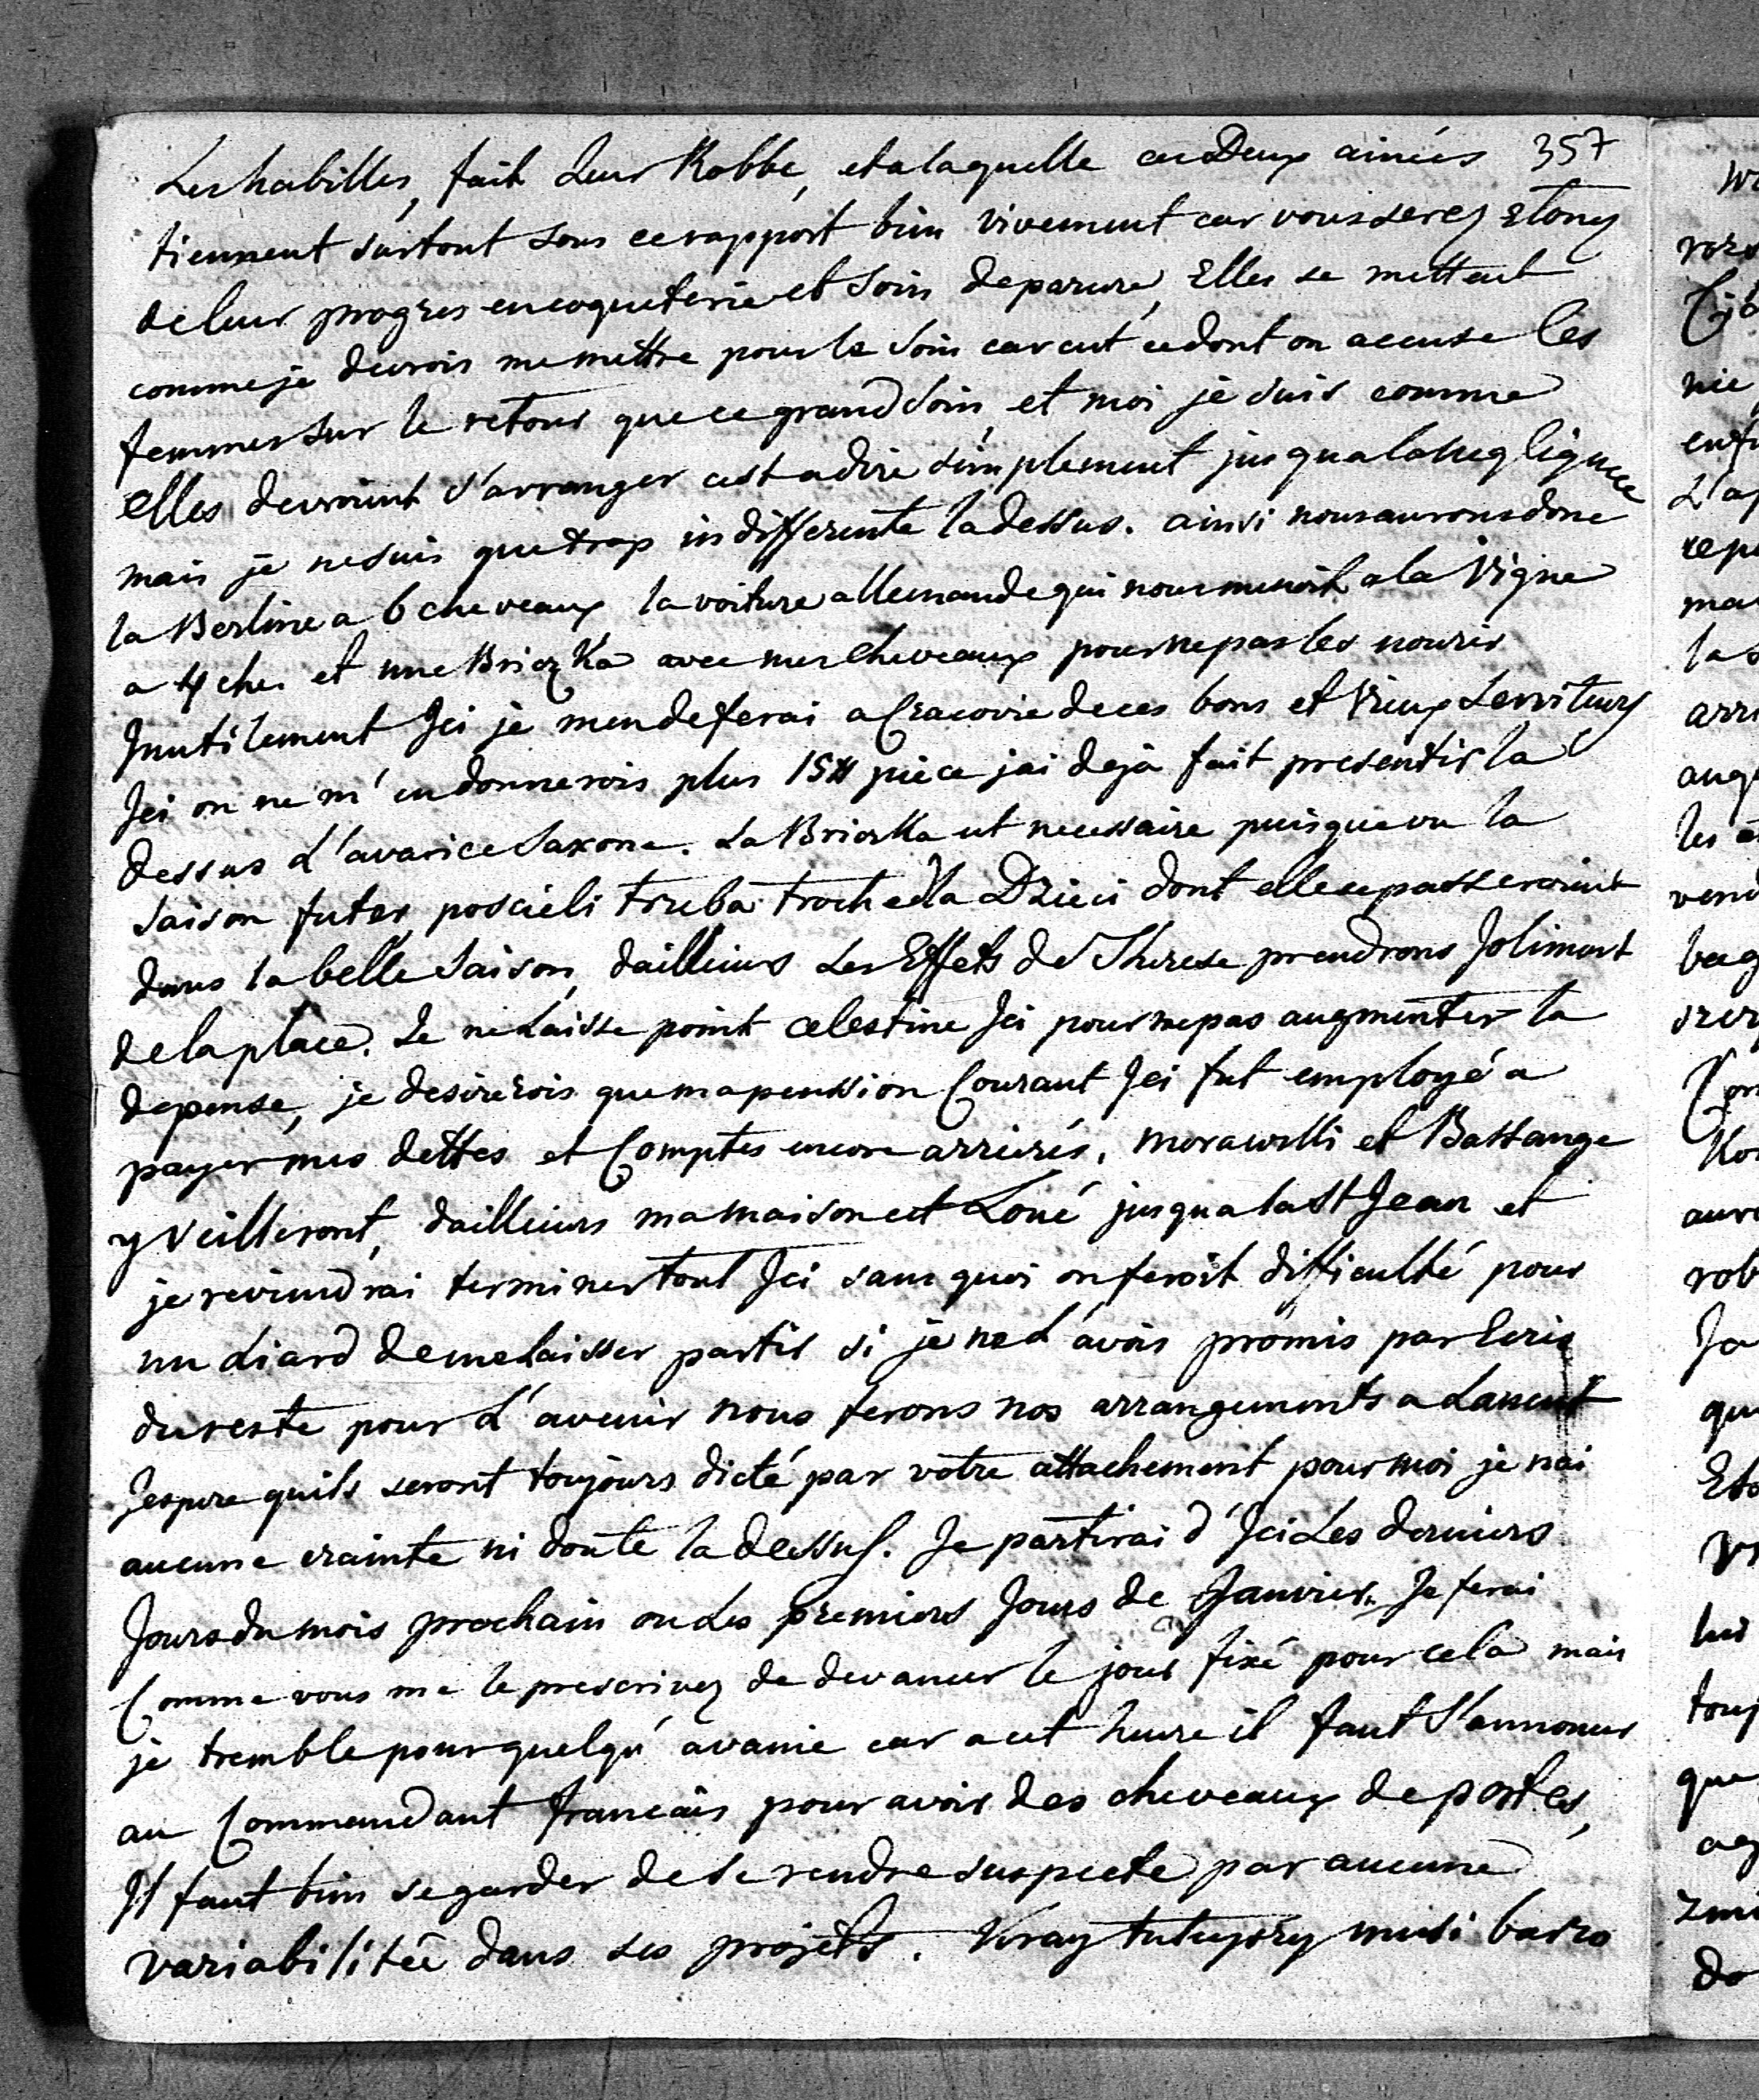 357
Les habilles, fait Leur Robbe, et a laquelle ces Deux ainées
tiennent surtout sous ce rapport bien vivement car vous serez Etoney
de leur progres en coqueterie et Soin de parure, Elles se mettent
comme je devrois me mettre pour le Soin car cest ce dont on accuse les
femmes sur le retour que ce grand Soin, et moi je suis comme
elles devroient s'arranger cest a dire simplement jusqua la negligence
mais je ne suis que trop indifferente la dessus. ainsi nous aurons donc
la Berline a 6 cheveaux la voiture allemande qui nous menoit a la Vigne
a 4 che: et une Briczka avec mes Cheveaux pour ne pas les nourir
Inutilement Ici je men deferai a Cracovie de ces bons et Vieux Serviteurs
Ici on ne m'en donnerois plus 15# piece jai dejà fait presentir la
dessus L'avarice Saxone. La Briczka est necessaire puisque vu la
Saison futer, poscieli trzeba troche dla Dzieci dont elle se passeroient
dans la belle Saison, dailleurs Les Effets de Therese prendrons Joliment
de la place. Je ne Laisse point celestine Ici pour ne pas augmenter la
depense, je desirerois que ma penssion Courant Ici fut employé a
payer mes dettes et Comptes encore arrierés, Morawski et Bassange
y Veilleront, dailleurs ma maison est Loué jusqua la St Jean et
je reviendrai terminer tout Ici sans quoi on feroit difficulté pour
un Liard de me Laisser partir si je ne L'avois promis par Ecrit
du reste pour L'avenir nous ferons nos arrangements a Lancut
Jespere quils seront toujours dicté par votre attachement pour moi je nai
aucune crainte ni doute la dessus. Je partirai d'Ici Les derniers
Jours du mois prochain ou Les premiers Jours de Janvier. Je ferai
Comme vous me le prescrivez de devancer le jour fixé pour cela mais
je tremble pour quelqu'avanie car a cet heure il faut S'annoncer
au Commandant francais pour avoir des cheveaux de postes,
Il faut bien se garder de se rendre suspecte par aucune
variabilitée dans ses projets. Kray tuteyszy musi bardzo